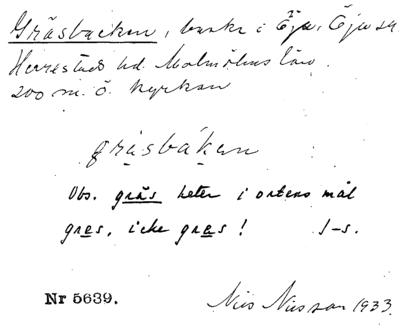 Gräsbacken, backe i Öja, Öja sn
Herrestads hd. Malmöhus län.
200 m. Ö. kyrkan
gräsbáken
Obs. gräs heter i ortens mål
gres, icke gras! I-s.
Nr 5639.
Nils Nilsson 1933.